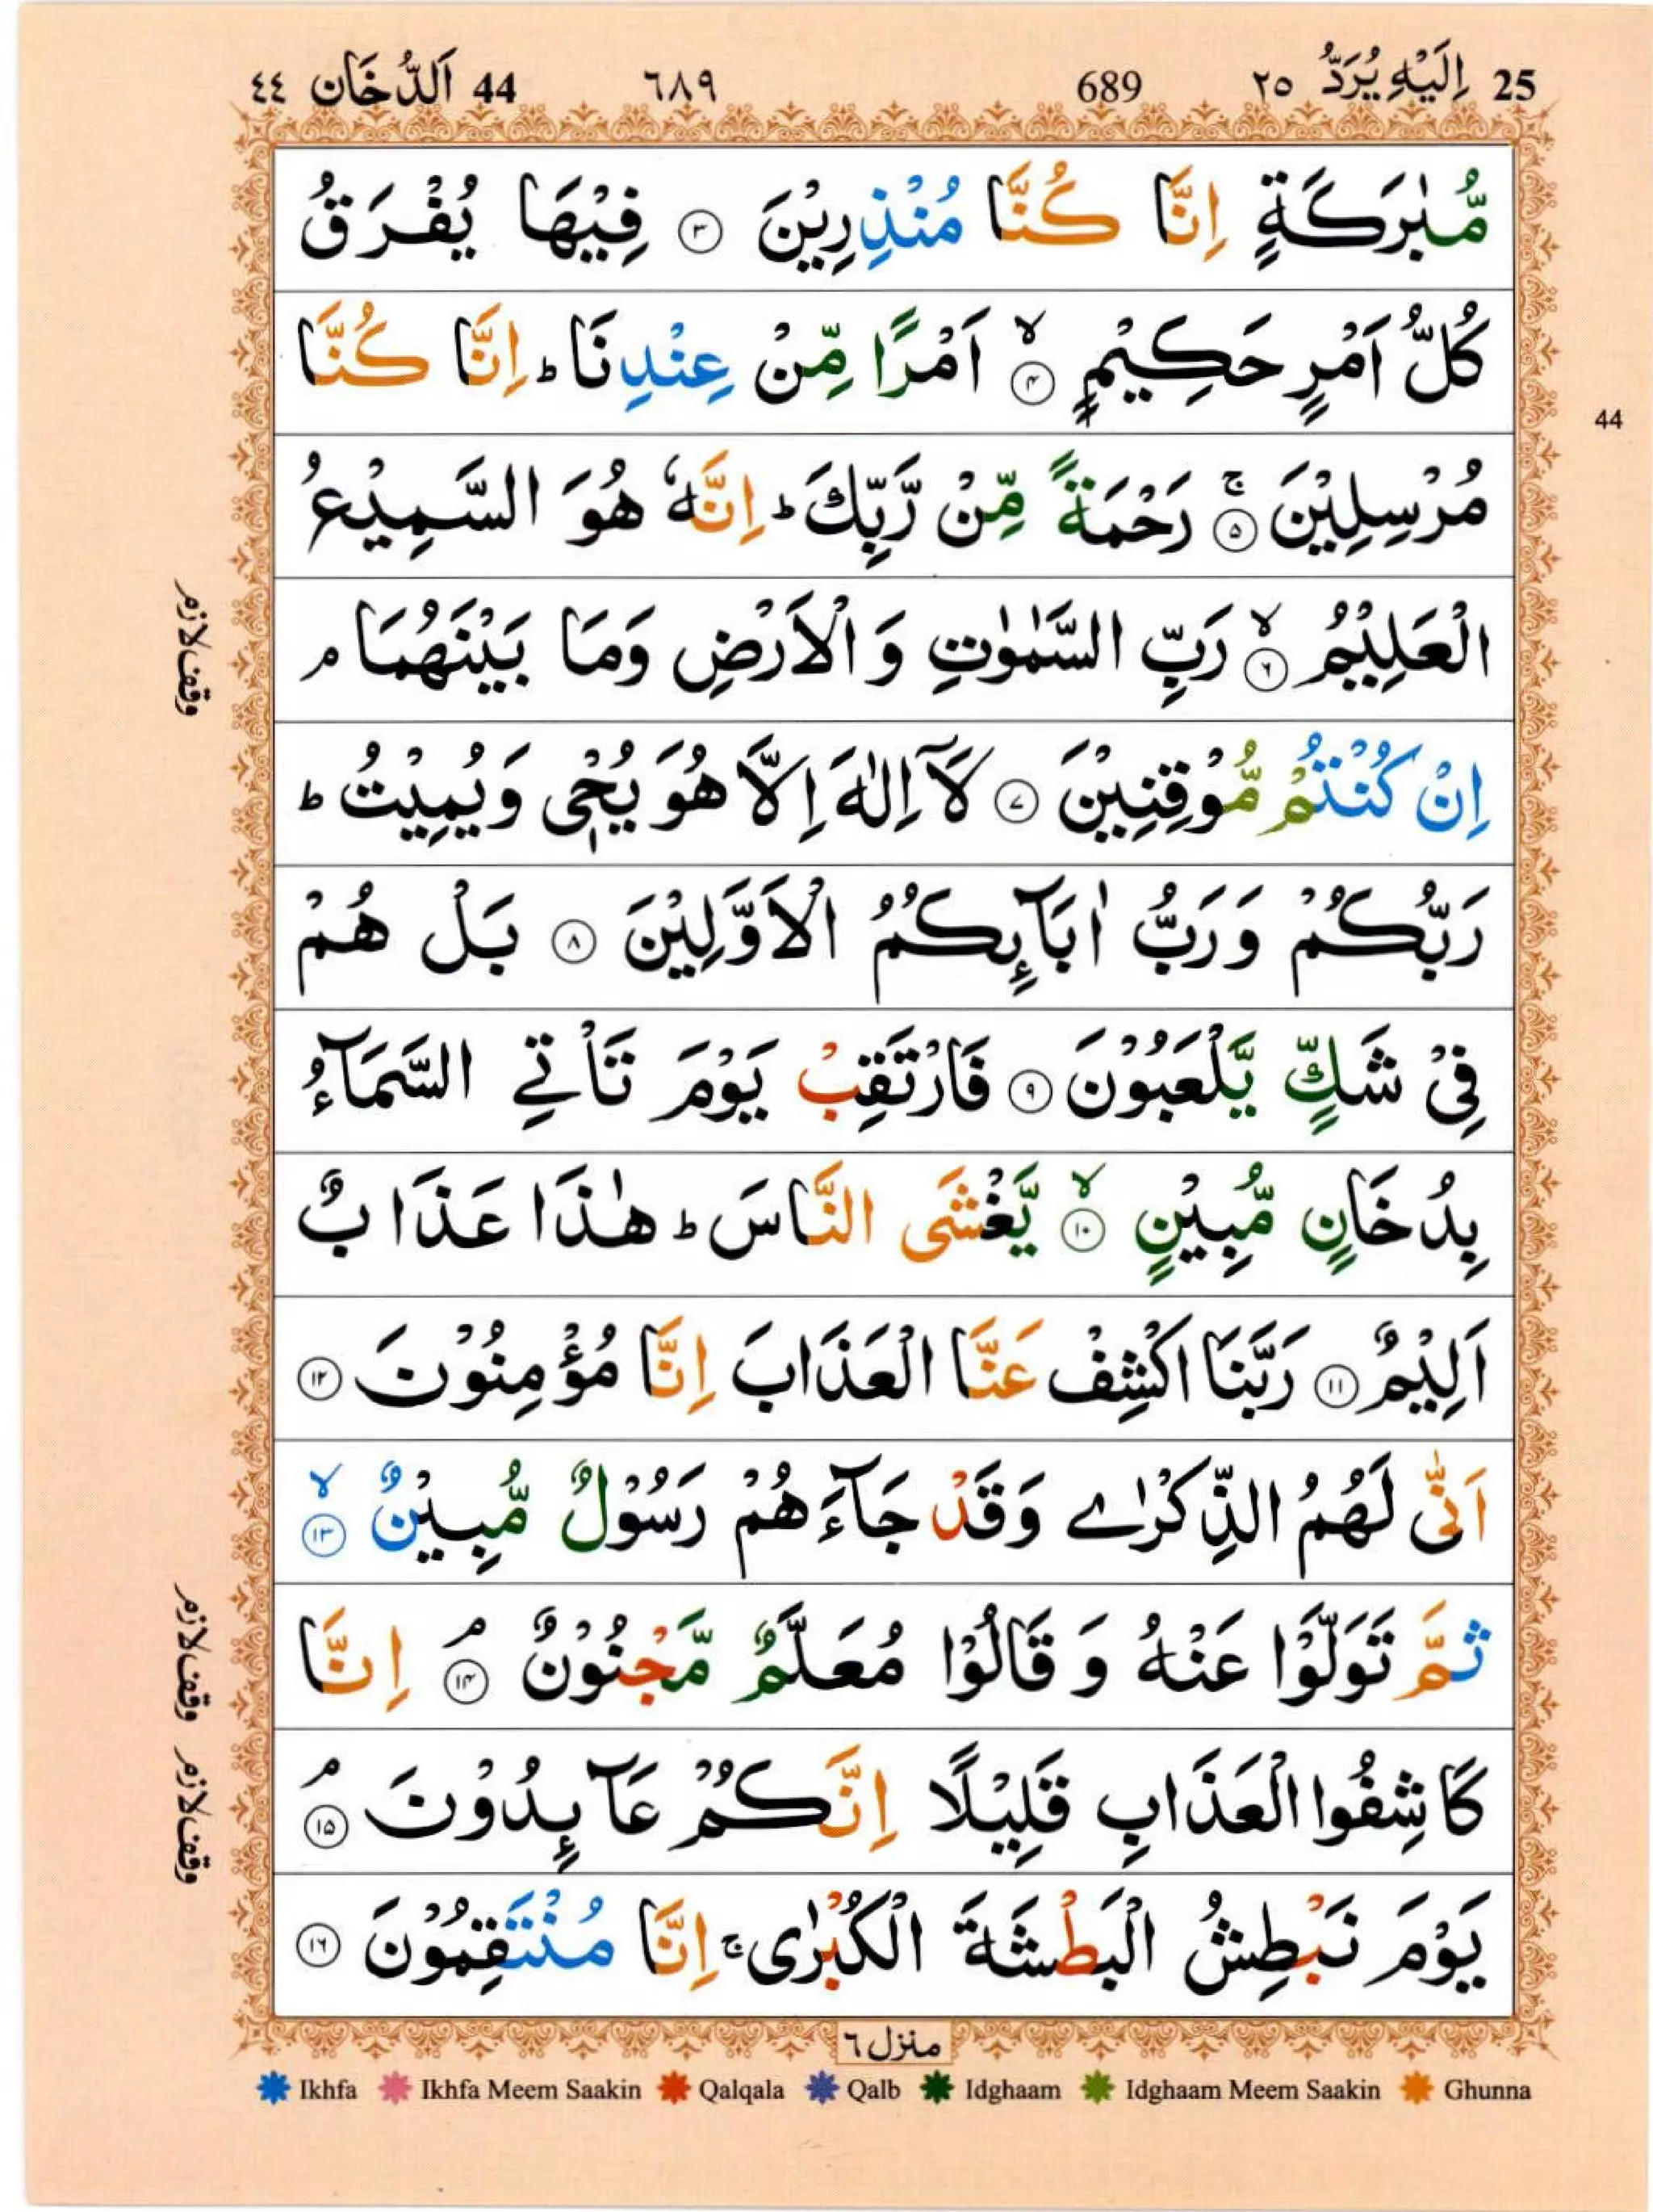 25 اِلَيْهِ يُرَدُّ ٢٥ 689 ٦٨٩ 44 اَلدُّخَان ٤٤
مُّبٰرَكَةٍ اِنَّا كُنَّا مُنْذِرِيْنَ ۝٣ فِيْهَا يُفْرَقُ
كُلُّ اَمْرٍ حَكِيْمٍ ۙ۝٤ اَمْرًا مِّنْ عِنْدِنَا ؕ اِنَّا كُنَّا
44
مُرْسِلِيْنَ ۚ۝٥ رَحْمَةً مِّنْ رَّبِّكَ ؕ اِنَّهٗ هُوَ السَّمِيْعُ
الْعَلِيْمُ ۙ۝٦ رَبِّ السَّمٰوٰتِ وَ الْاَرْضِ وَمَا بَيْنَهُمَا ۘ
وقف لازم
اِنْ كُنْتُمْ مُّوْقِنِيْنَ ۝٧ لَاۤ اِلٰهَ اِلَّا هُوَ يُحْيٖ وَيُمِيْتُ ؕ
رَبُّكُمْ وَرَبُّ اٰبَآئِكُمُ الْاَوَّلِيْنَ ۝٨ بَلْ هُمْ
فِيْ شَكٍّ يَّلْعَبُوْنَ ۝٩ فَارْتَقِبْ يَوْمَ تَاْتِي السَّمَآءُ
بِدُخَانٍ مُّبِيْنٍ ۙ۝١٠ يَّغْشَى النَّاسَ ؕ هٰذَا عَذَابٌ
اَلِيْمٌ ۝١١ رَبَّنَا اكْشِفْ عَنَّا الْعَذَابَ اِنَّا مُؤْمِنُوْنَ ۝١٢
اَنّٰى لَهُمُ الذِّكْرٰى وَقَدْ جَآءَهُمْ رَسُوْلٌ مُّبِيْنٌ ۙ۝١٣
ثُمَّ تَوَلَّوْا عَنْهُ وَ قَالُوْا مُعَلَّمٌ مَّجْنُوْنٌ ۘ۝١٤ اِنَّا
وقف لازم
كَاشِفُوا الْعَذَابِ قَلِيْلًا اِنَّكُمْ عَآئِدُوْنَ ۘ۝١٥
وقف لازم
يَوْمَ نَبْطِشُ الْبَطْشَةَ الْكُبْرٰى ۚ اِنَّا مُنْتَقِمُوْنَ ۝١٦
منزل ٦
Ikhfa Ikhfa Meem Saakin Qalqala Qalb Idghaam Idghaam Meem Saakin Ghunna